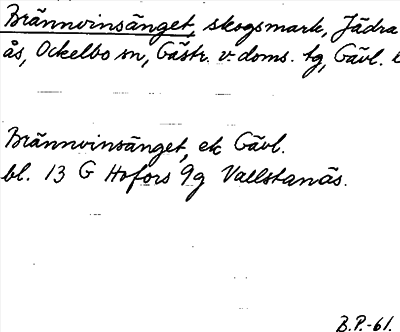 Brännvinsänget, skogsmark, Jädra
ås, Ockelbo sn, Gästr. v. doms. tg, Gävl. l
Brännvinsänget, ek Gävl.
bl. 13 G Hofors 9g Vallstanäs.
B.P.-61.